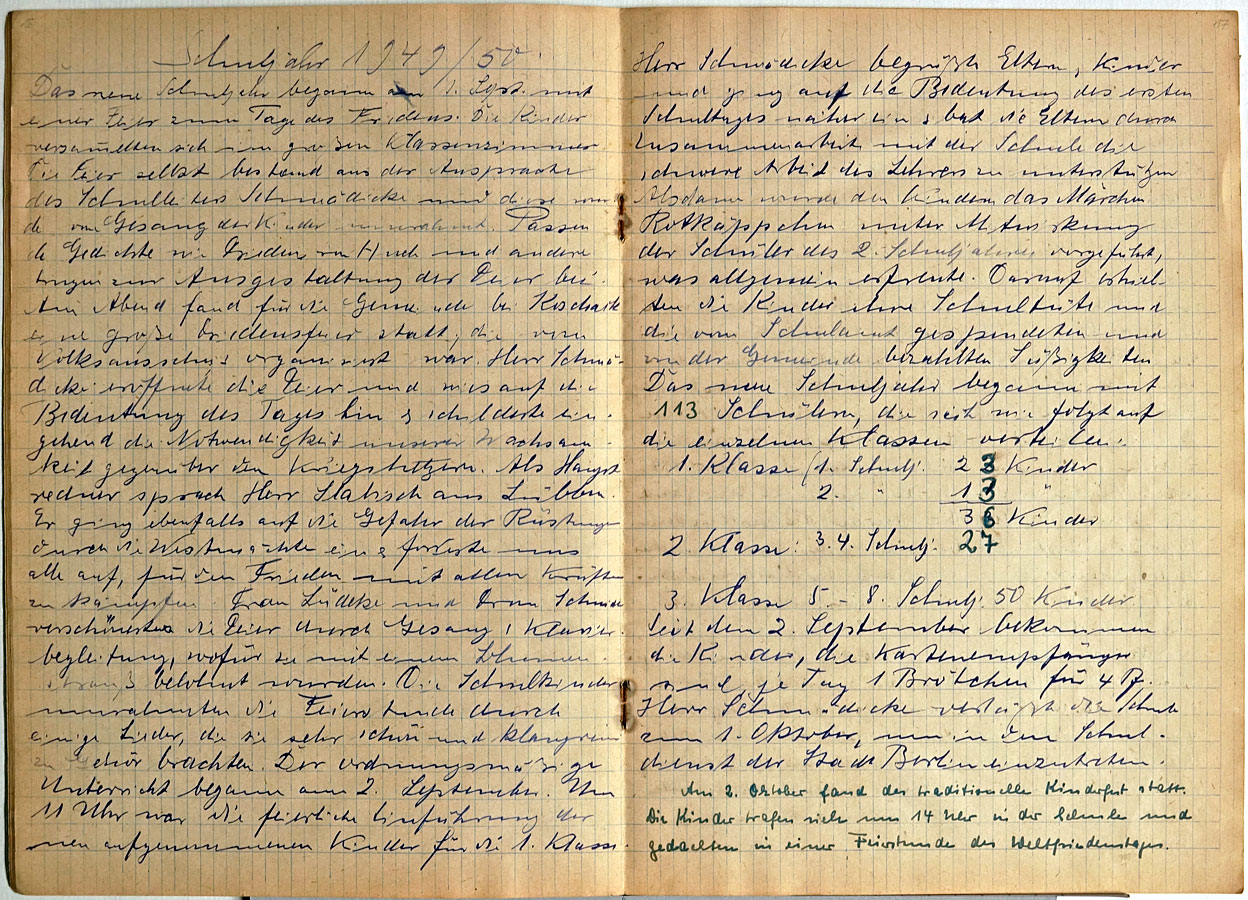 Schuljahr 1949/50.
Das neue Schuljahr begann am 1. Sept. mit
einer Feier zum Tage des Friedens. Die Kinder
versammelten sich im großen Klassenzimmer.
Die Feier selbst bestand aus der Ansprache
des Schulleiters Schmädicke und diese wur
de vom Gesang der Kinder umrahmt. Passen
de Gedichte wie Frieden von Huch und andere
trugen zur Ausgestaltung der Feier bei.
Am Abend fand für die Gemeinde bei
eine große Friedensfeier statt, die vom
Volksausschuß organisiert war. Herr Schmä-
dicke eröffnete die Feier und wies auf die
Bedeutung des Tages hin & schilderte ein-
gehend die Notwendigkeit unserer Wachsam-
keit gegenüber den Kriegshetzern. Als Haupt
redner sprach Herr aus Lübben.
Er ging ebenfalls auf die Gefahr der Rüstungen
durch die Westmächte ein & forderte uns
alle auf, für den Frieden mit allen Kräften
zu kämpfen. Frau Lüdcke und Frau
verschönerten die Feier durch Gesang & Klavier-
begleitung, wofür sie mit einem Blumen-
strauß belohnt wurden. Die Schulkinder
umrahmten die Feierstunde durch
einige Lieder, die sie sehr schön und klangrein
zu Gehör brachten. Der ordnungsmäßige
Unterricht begann am 2. September. Um
11 Uhr war die feierliche Einführung der
neu aufgenommenen Kinder für die 1. Klasse.
17
Herr Schmädicke begrüßte Eltern, Kinder
und ging auf die Bedeutung des ersten
Schultages näher ein & bat die Eltern durch
Zusammenarbeit mit der Schule die
schwere Arbeit des Lehrers zu unterstützen
Alsdann wurde den Kindern das Märchen
Rotkäppchen unter Mitwirkung
der Schüler des 2. Schuljahres vorgeführt,
was allgemein erfreute. Darauf erhiel-
ten die Kinder ihre Schultüte und
die vom Schulamt gespendeten und
von der Gemeinde bezahlten Süßigkeiten
Das neue Schuljahr begann mit
113 Schülern, die sich wie folgt auf
die einzelnen Klassen verteilen:
1. Klasse (1. Schulj. 23 Kinder
2. " 13 "
36 Kinder
2. Klasse: 3. 4. Schulj. 27
3. Klasse 5. - 8. Schulj. 50 Kinder
Seit dem 2. September bekommen
die Kinder, die Kartenempfänger
sind, je Tag 1 Brötchen für 4 Pf.
Herr Schmädicke verläßt die Schule
zum 1. Oktober, um in den Schul-
dienst der Stadt Berlin einzutreten.
Am 2. Oktober fand das traditionelle Kinderfest statt.
Die Kinder trafen sich um 14 Uhr in der Schule und
gedachten in einer Feierstunde des Weltfriedenstages.